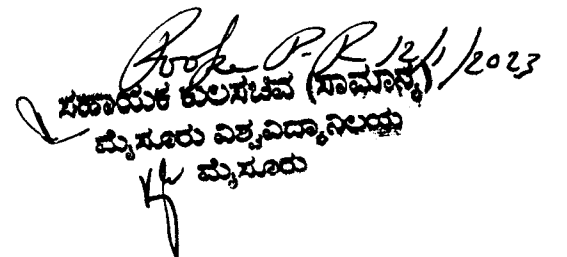 P. R 12/1/2023
ಸಹಾಯಕ ಕುಲಸಚಿವ (ಸಾಮಾನ್ಯ)
ಮೈಸೂರು ವಿಶ್ವವಿದ್ಯಾನಿಲಯ
ಮೈಸೂರು